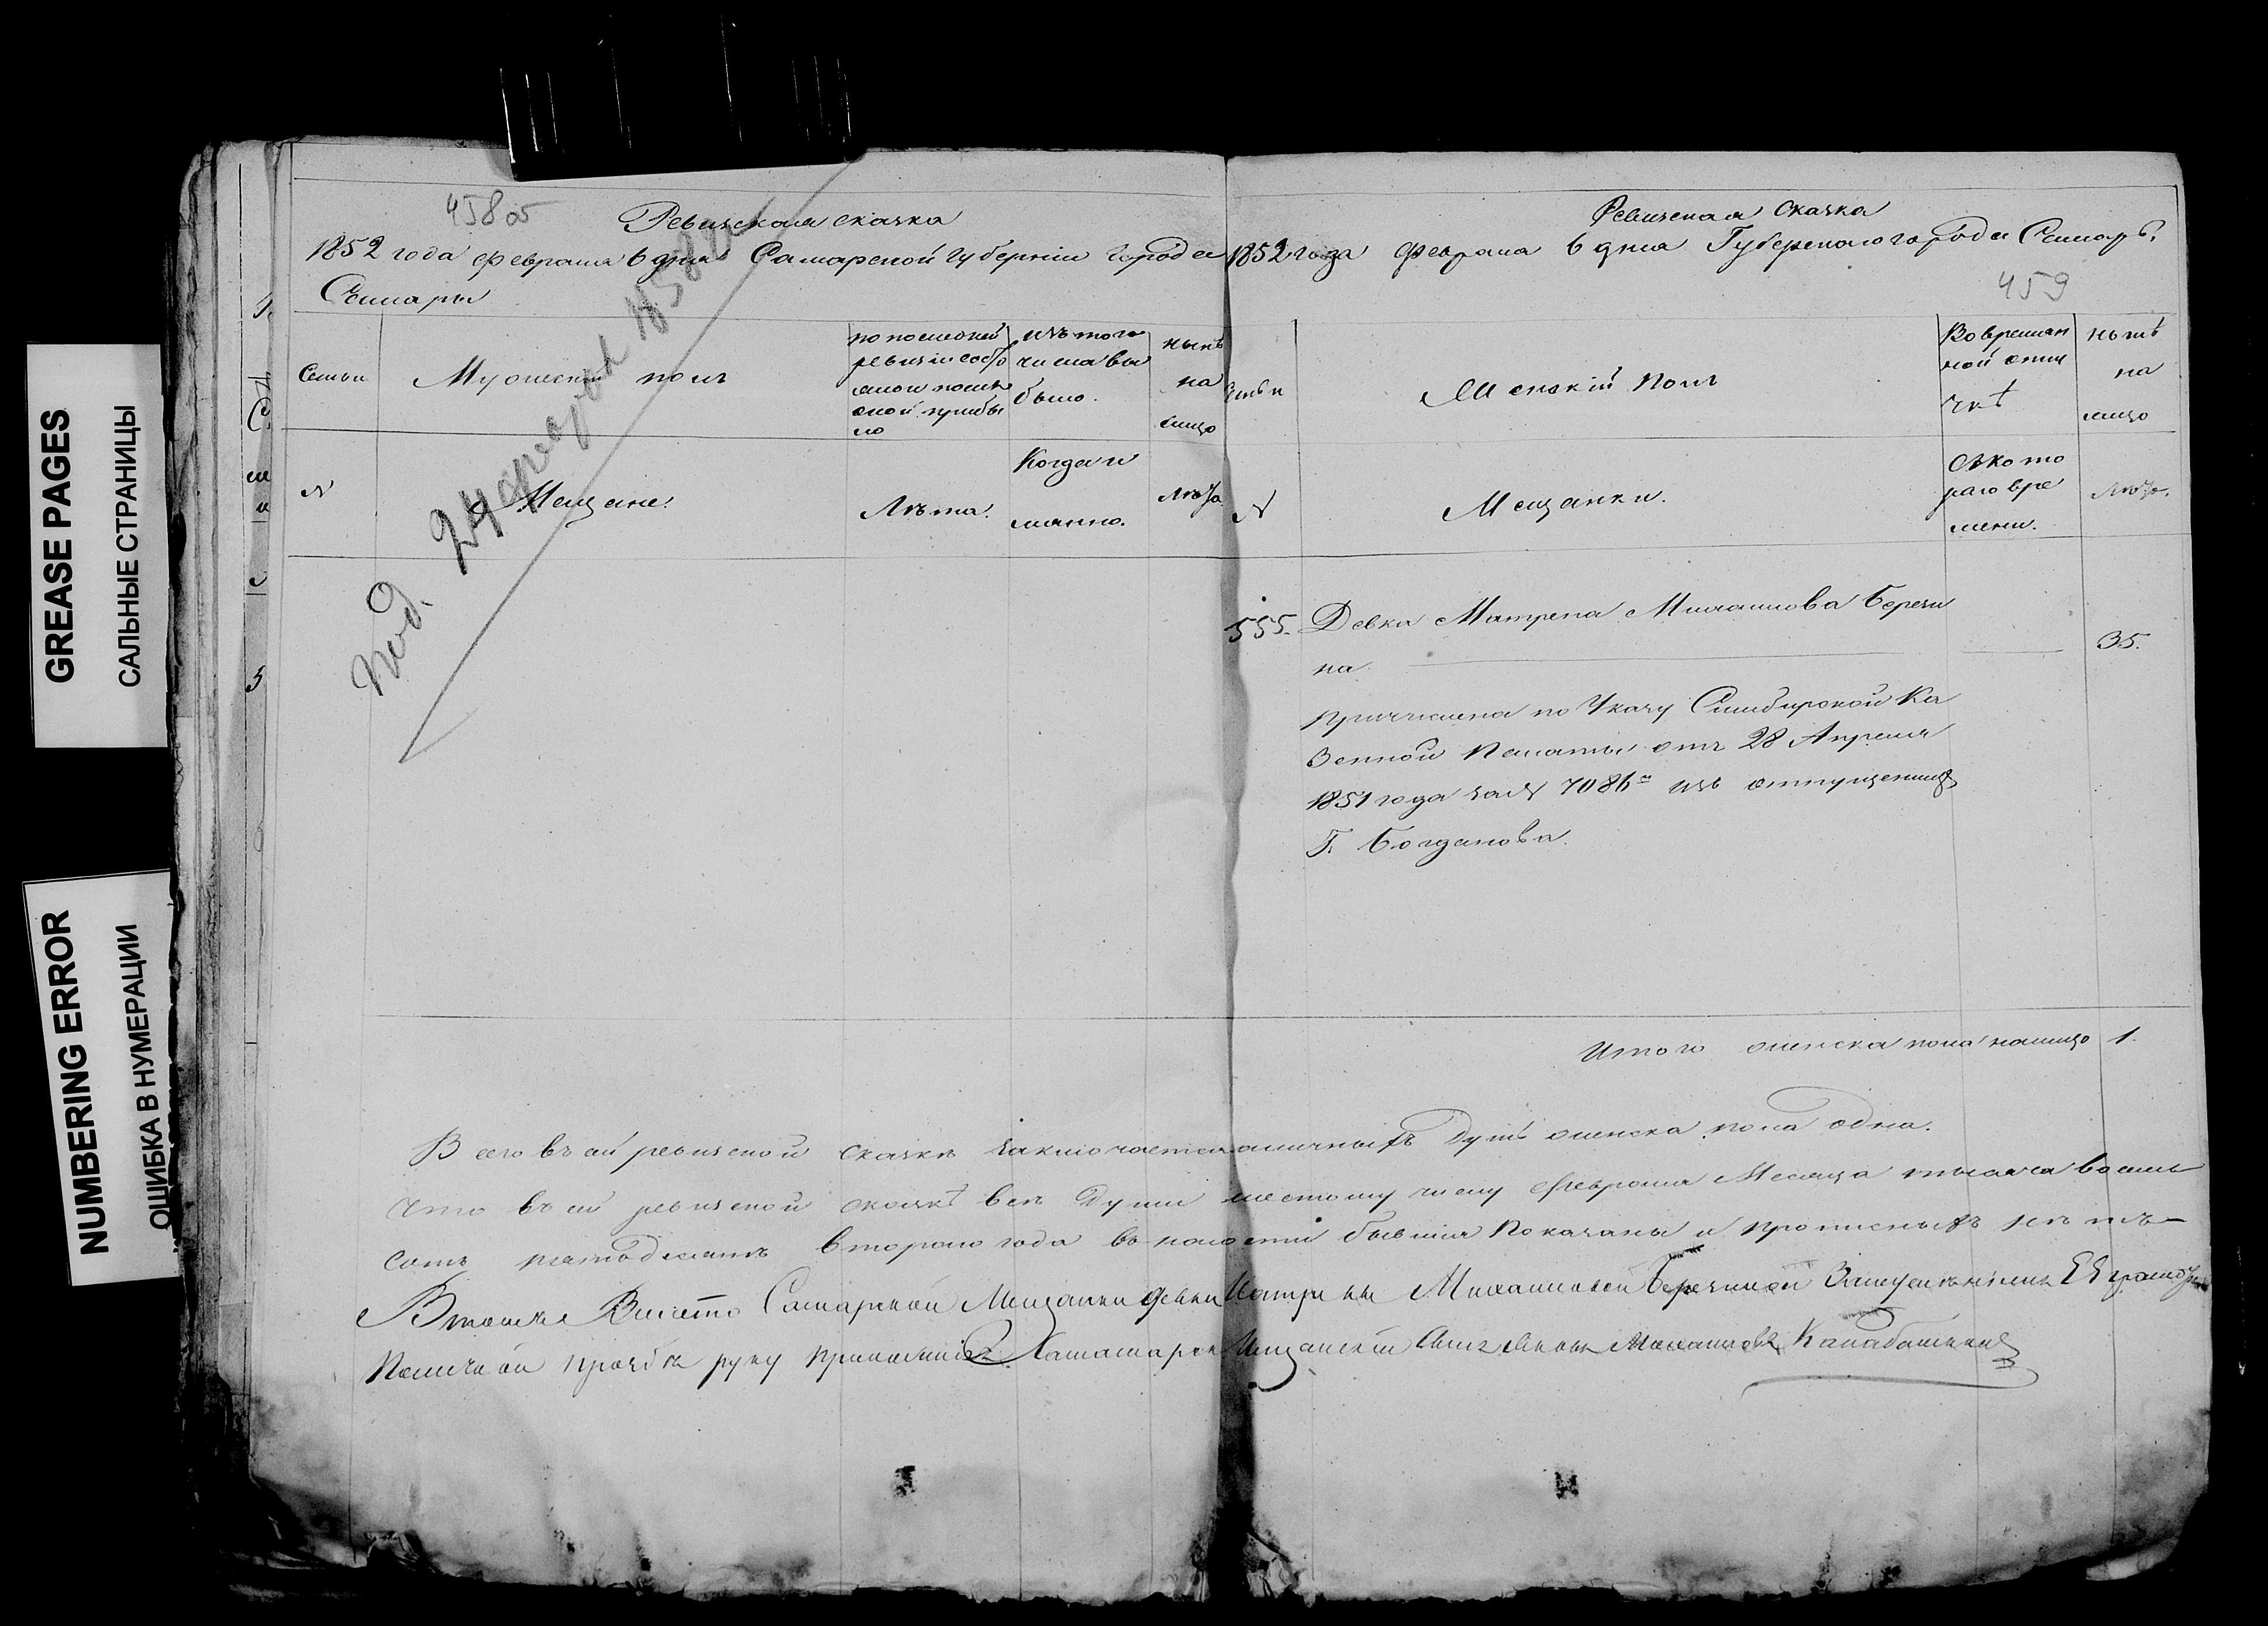 GREASE PAGES
САЛЬНЫЕ СТРАНИЦЫ
NUMBERING ERROR
ОШИБКА В НУМЕРАЦИИ
458 об
Ревизская сказка
1852 года февраля 6 дня Самарской губернии города
Самары
Семьи
Мужеский полъ
по последней
ревизіи состо
было.
нынѣ
на
лицо
N
Мещане.
Лѣта.
Когда и
имянно.
Лѣта.
Ревизская Сказка
1852 года февраля 6 дня Губернскаго города Самары.
459
Семьи
Женскій полъ
Во времян
ной отлу
чкѣ
нынѣ
на
лицо
N
Мещанки.
Съ кото
раго вре
мени.
Лѣта.
555.
Девка Матрена Михаилова Берези
на
35.
Причислена по Указу Симбирской Ка
зенной Палаты отъ 28 Апреля
1851 года за N 7086м изъ отпущенных
Г. Богданова.
Итого женска пола налицо 1.
Всего въ сей ревизской сказкѣ заключается наличныхъ душъ женска пола одна.
Что въ сей ревизской сказкѣ всѣ души шестому числу февраля месяца тысяча восем
сотъ пятьдесятъ втораго года въ налости бывшия показаны и прописныхъ нѣтъ
Самарской Мещанки девки Матрены Михаиловой Березиной
прозьбе руку приложилъ Самарск Мещанскій